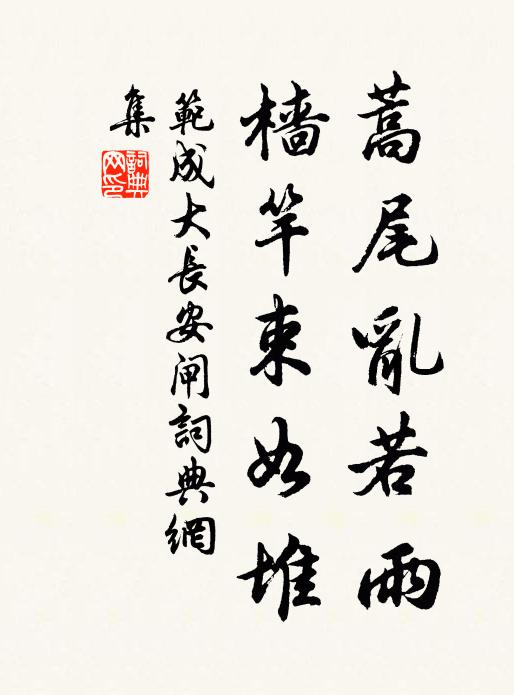 蒿尾亂若雨
檣竿束如堆
範成大長安閘詞典網
集
詞典
网印